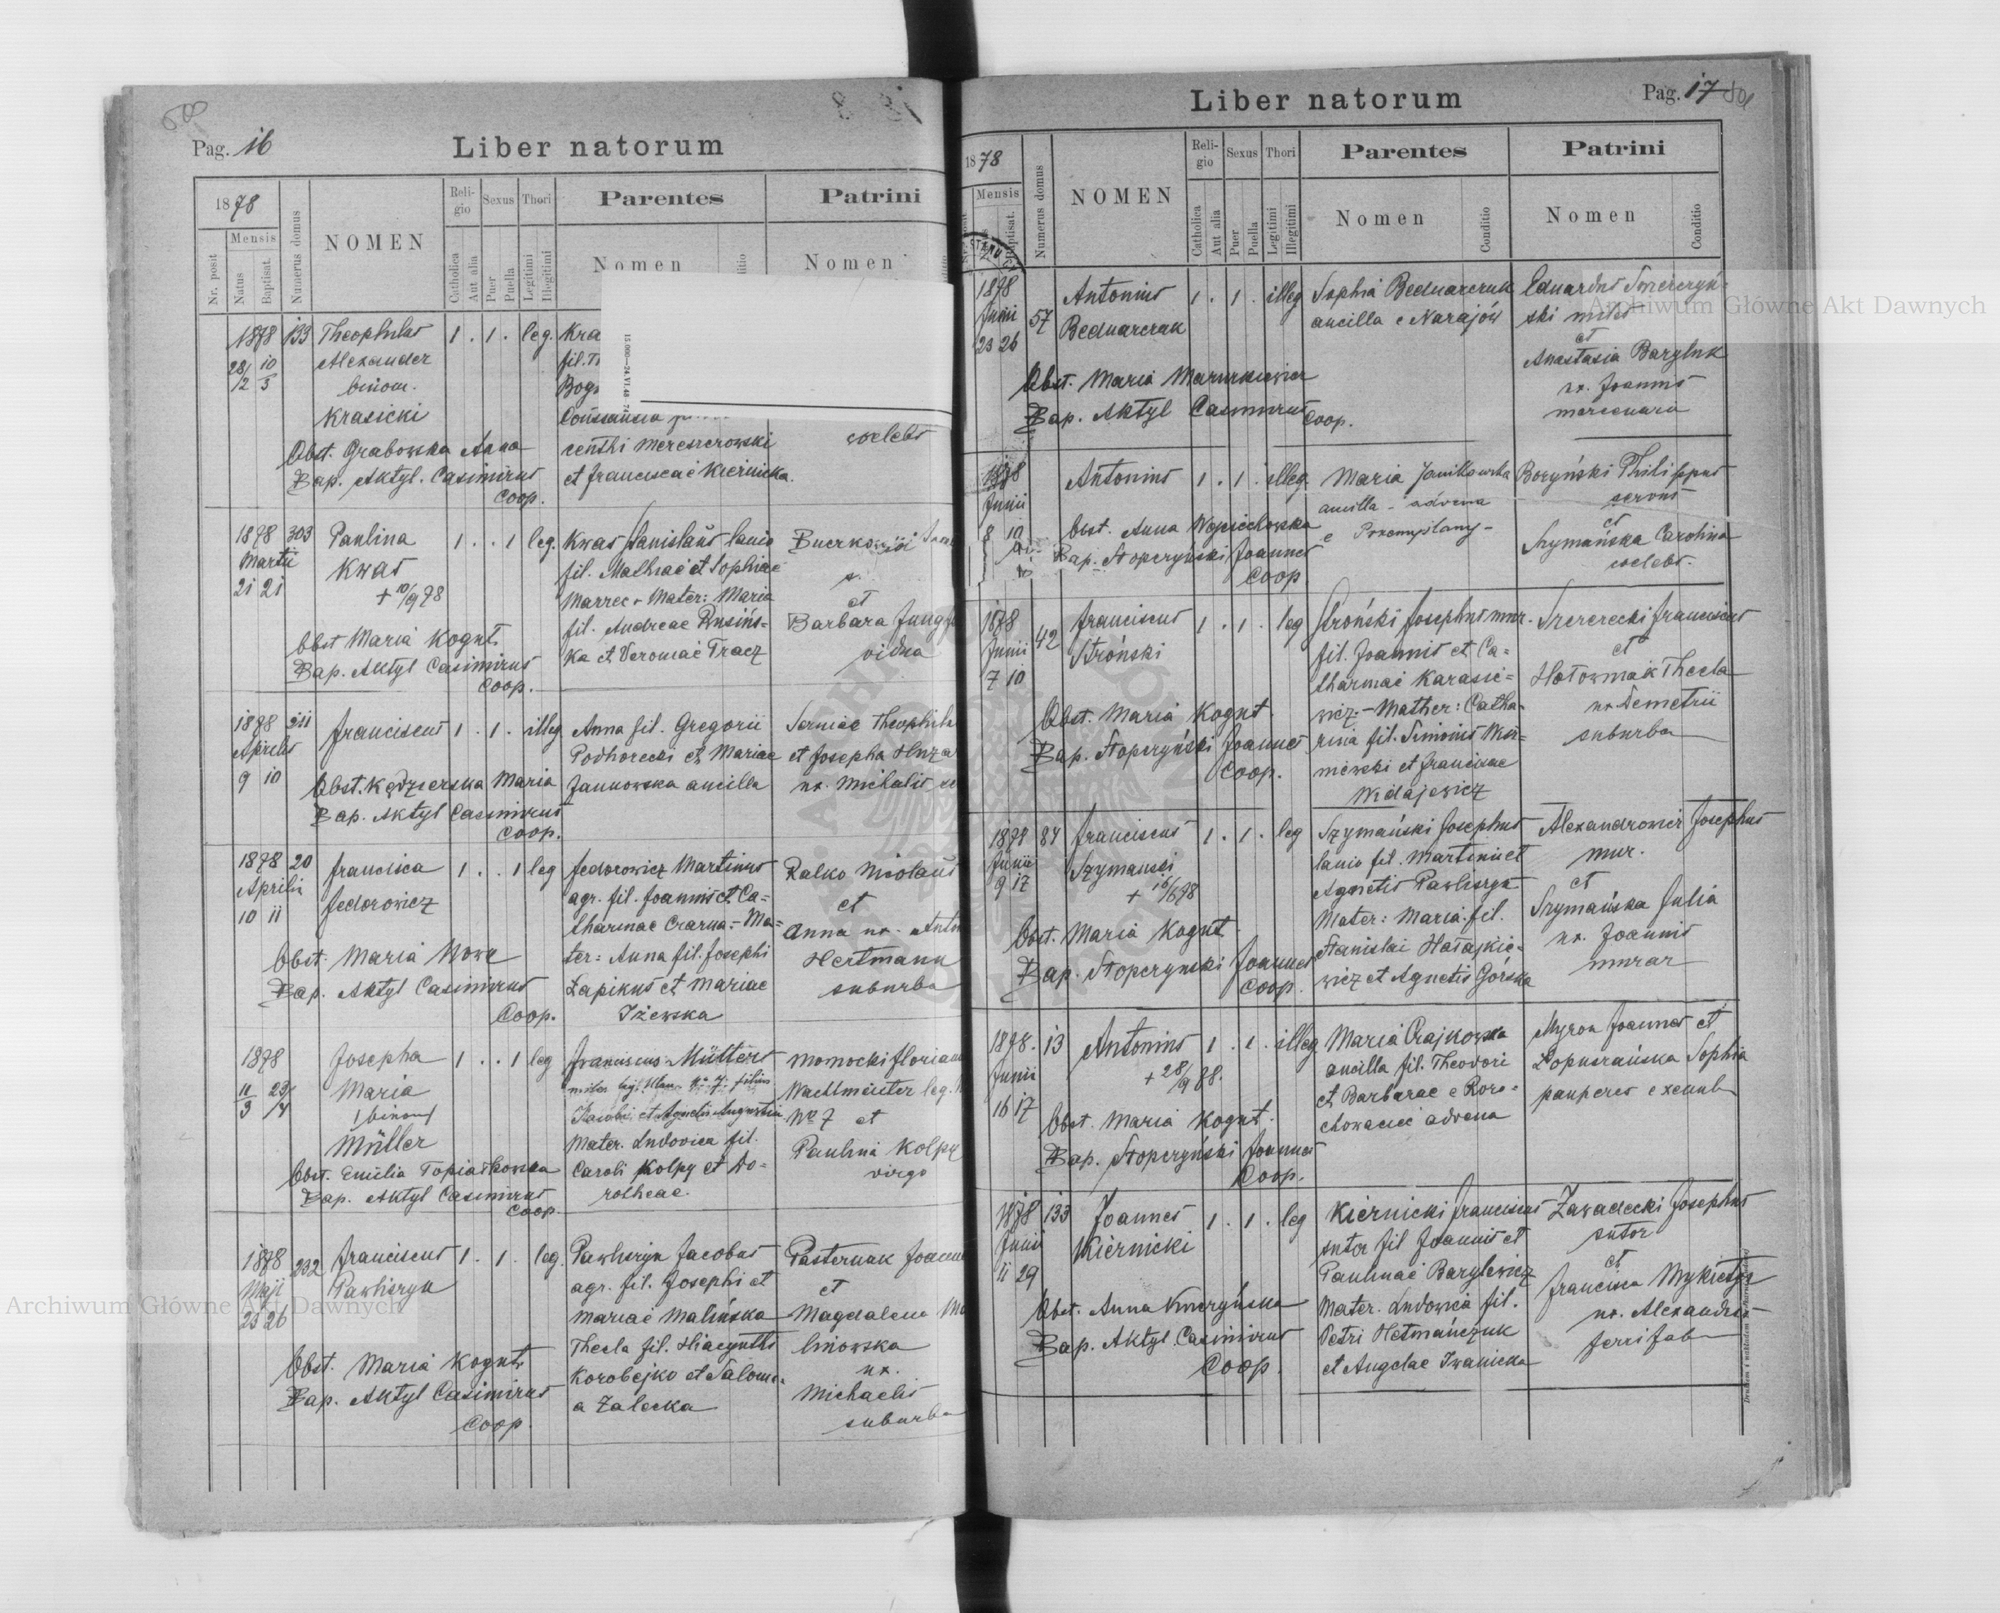 Pag. 16
Liber natorum
1878
Nr. posit
Mensis
Natus
Baptisat.
Numerus domus
NOMEN
Religio
Catholica
Aut alia
Sexus
Puer
Puella
Thori
Legitimi
Illegitimi
Parentes
Nomen
Patrini
Nomen
1878 133 Theophilus 1 . 1 . leg. Kra
28/2 10/3 Alexander fil.
binom. Bog
Krasicki Constancia
Obst. Grabowska Anna centhi Mereszczowski coelebs
Bap. Aktyl. Casimirus et Franciscae Kiernicka.
Coop.
1878 303 Paulina 1 . . 1 leg. Kwas Stanislaus lanio
Martii Kwas fil. Mathiae et Sophiae
21 21 + 10/9 78 Mater: Maria et
fil. Andreae Rusińs- Barbara
Obst Maria Kogut. ka et Veroniae Tracz vidua
Bap. Aktyl Casimirus
Coop.
1878 211 Franciscus 1 . 1 . illeg Anna fil. Gregorii Theophila
Aprilis Podhorecki et Mariae et Josepha
9 10 Obst. Kędzierska Maria Jankowska ancilla ux. Michaelis
Bap. Aktyl Casimirus
Coop.
1878 20 Francisca 1 . . 1 leg Fedorowicz Martinus Ralko Nicolaus
Aprilis Fedorowicz agr. fil. Joannis et Ca- et
10 11 tharinae Czarna - Ma- Anna ux.
Obst. Maria Nowa ter: Anna fil. Josephi Hertmann
Bap. Aktyl Casimirus Łapikus et Mariae suburba
Coop. Iżewska
1878 Josepha 1 . . 1 leg Franciscus Müller Momocki Florian
11/3 23/4 Maria Wachtmeister leg.
binom No 7 et
Müller Mater. Ludovica fil. Paulina Kolpy
Obst. Emilia Caroli Kolpy et Do- virgo
Bap. Aktyl Casimirus rotheae.
Coop
1878 232 Franciscus 1 . 1 . leg. Pawliszyn Jacobus Pasternak
Maji Pawliszyn agr. fil. Josephi et et
25 26 Mariae Malińska Magdalena Ma
Thecla fil. Hiacynthi linowska
Obst. Maria Kogut Korobejko et Salome- ux.
Bap. Aktyl Casimirus a Zalecka Michaelis
Coop. suburba
Liber natorum
Pag. 17
1878
Mensis
Baptisat.
Numerus domus
NOMEN
Religio
Catholica
Aut alia
Sexus
Puer
Puella
Thori
Legitimi
Illegitimi
Parentes
Nomen
Conditio
Patrini
Nomen
Conditio
1878 57 Antonius 1 . 1 . illeg Sophia Bednarczuk Eduardus
Junii Bednarczuk ancilla e Narajów ski miles
23 26 et
Anastasia Baryluk
Obst. Maria Mazurkiewicz ux. Joannis
Bap. Aktyl Casimirus Coop. mercenaria
1878 Antonius 1 . 1 . illeg. Maria Janitkowska Boryński Philippus
Junii ancilla - advena servus
8 10 Obst. Anna Wojciechowska e Przemyślany - et
Bap. Stopczyński Joannes Szymańska Carolina
Coop coelebs.
1878 42 Franciscus 1 . 1 . leg Stroński Josephus mur. Szczerecki Franciscus
Junii Stroński fil. Joannis et Ca- et
7 10 tharinae Karasie- Hołowniak Thecla
Obst. Maria Kogut wicz - Mather: Catha- ux Demetrii
Bap. Stopczyński Joannes rina fil. Simonis suburba
Coop. et Franciscae
1878 84 Franciscus 1 . 1 . leg Szymański Josephus Alexandrowicz Josephus
Junii Szymanski lanio fil. Martini et mur.
9 17 + Agnetis Pawliszyn et
Obst. Maria Kogut Mater: Maria fil. Szymańska Julia
Bap. Stopczynski Joannes Stanislai Hatajkie- ux. Joannis
Coop. wicz et Agnetis Górska murar
1878. 13 Antonius 1 . 1 . illeg Maria Czajkowska Myron Joannes et
Junii + 28/9 88. ancilla fil. Theodori Łopuszańska Sophia
16 17 et Barbarae e Roro- pauperes
Obst. Maria Kogut. advena
Bap. Stopczyński Joannes
Coop.
1878 133 Joannes 1 . 1 . leg Kiernicki Franciscus Zawadecki Josephus
Junii Kiernicki sutor fil Joannis et sutor
11 29 Paulinae Barylewicz et
Obst. Anna Mater. Ludovica fil. Francisca Mykietyn
Bap. Aktyl. Casimirus Petri Hetmańczuk ux. Alexandri
Coop. et Angelae Iwanicka ferri fab
Archiwum Główne Akt Dawnych
Archiwum Główne Akt Dawnych